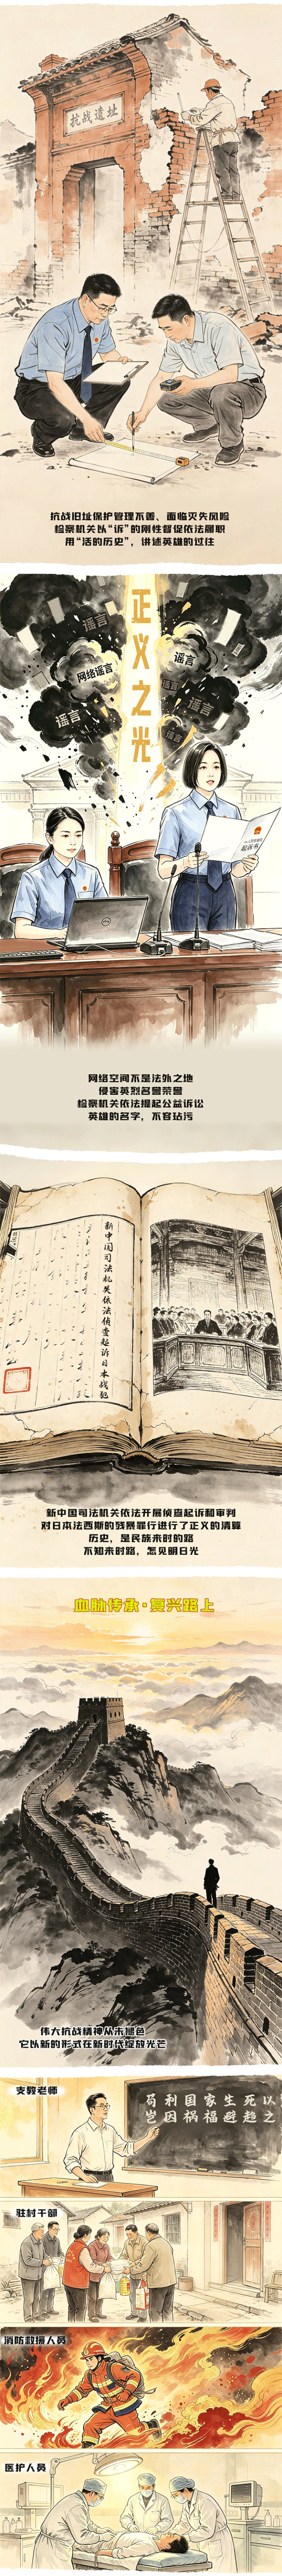 抗战遗址
抗战旧址保护管理不善、面临灭失风险
检察机关以“诉”的刚性督促依法履职
用“活的历史”，讲述英雄的过往
正义之光
谣言
网络谣言
谣言
谣言
谣言
起诉书
网络空间不是法外之地
侵害英烈名誉荣誉
检察机关依法提起公益诉讼
英雄的名字，不容玷污
新中国司法机关依法侦查起诉日本战犯
新中国司法机关依法开展侦查起诉和审判
对日本法西斯的残暴罪行进行了正义的清算
历史，是民族来时的路
不知来时路，怎见明日光
血脉传承·复兴路上
伟大抗战精神从未褪色
它以新的形式在新时代绽放光芒
支教老师
苟利国家生死以
岂因祸福避趋之
驻村干部
消防救援人员
医护人员